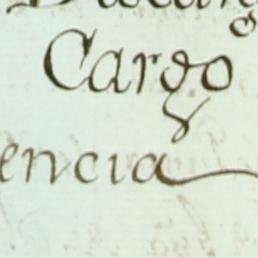 Cargo
encia